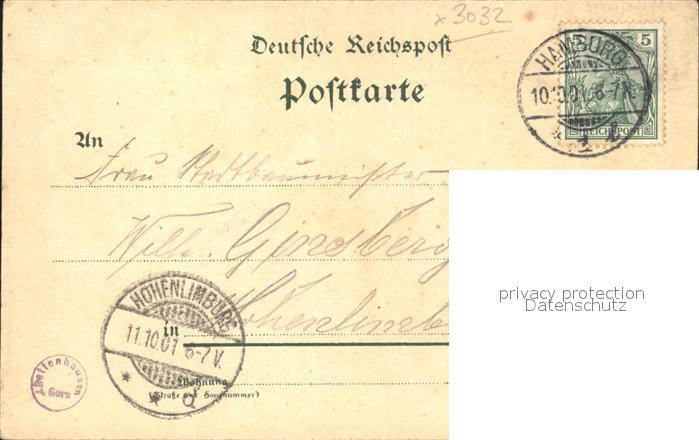 x 3032
Deutsche Reichspost
Postkarte
5
REICHSPOST
HAMBURG
10.10.01. 6-7 N.
* 1 l
An
Frau Stadtbaumeister
Wilh. Ginsberg
in Hohenlimb
HOHENLIMBURG
11.10.01 6-7 V.
* * d
Wohnung
(Straße und Hausnummer)
Bettenhausen
Gera
privacy protection
Datenschutz